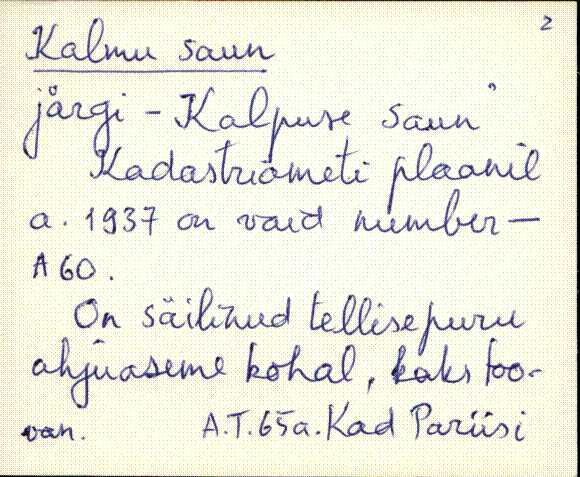 2
Kalmu saun
järgi - Kalpuse saun"
Kadastriameti plaanil
a. 1937 on vaid number -
A 60.
On säilinud tellisepuru
ahjuaseme kohal, kaks too-
van. A.T. 65a. Kad Pariisi